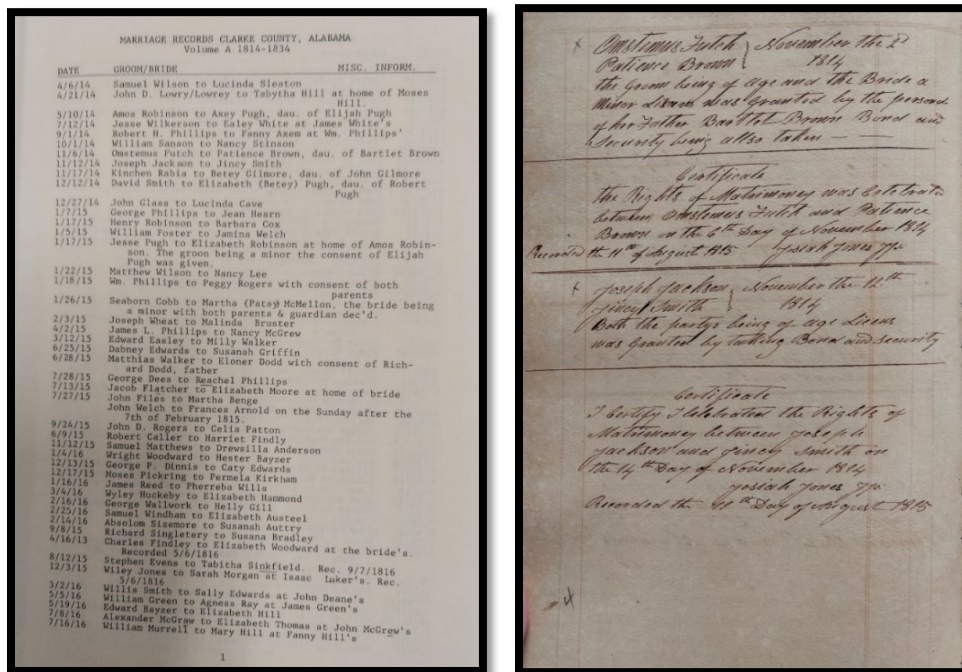 MARRIAGE RECORDS CLARKE COUNTY, ALABAMA
Volume A 1814-1834
DATE GROOM/BRIDE MISC. INFORM.
4/6/14 Samuel Wilson to Lucinda Sleaton
4/21/14 John D. Lowry/Lowrey to Tabytha Hill at home of Moses
Hill.
5/10/14 Amos Robinson to Axey Pugh, dau. of Elijah Pugh
7/12/14 Jesse Wilkerson to Ealey White at James White's
9/1/14 Robert H. Phillips to Fanny Axem at Wm. Phillips'
10/1/14 William Sanson to Nancy Stinson
11/6/14 Omstemus Futch to Patience Brown, dau. of Bartlet Brown
11/12/14 Joseph Jackson to Jincy Smith
11/17/14 Kinchen Rabia to Betey Gilmore, dau. of John Gilmore
12/12/14 David Smith to Elizabeth (Betey) Pugh, dau. of Robert
Pugh
12/27/14 John Glass to Lucinda Cave
1/7/15 George Phillips to Jean Hearn
1/17/15 Henry Robinson to Barbara Cox
1/5/15 William Foster to Jamina Welch
1/17/15 Jesse Pugh to Elizabeth Robinson at home of Amos Robin-
son. The groon being a minor the consent of Elijah
Pugh was given.
1/22/15 Matthew Wilson to Nancy Lee
1/18/15 Wm. Phillips to Peggy Rogers with consent of both
parents
1/26/15 Seaborn Cobb to Martha (Patsy) McMellon, the bride being
a minor with both parents & guardian dec'd.
2/3/15 Joseph Wheat to Malinda Bruster
4/2/15 James L. Phillips to Nancy McGrew
3/12/15 Edward Easley to Milly Walker
6/25/15 Dabney Edwards to Susanah Griffin
6/28/15 Matthias Walker to Eloner Dodd with consent of Rich-
ard Dodd, father
7/28/15 George Dees to Reachel Phillips
7/13/15 Jacob Flatcher to Elizabeth Moore at home of bride
7/27/15 John Files to Martha Benge
John Welch to Frances Arnold on the Sunday after the
7th of February 1815.
9/24/15 John D. Rogers to Celia Patton
6/9/15 Robert Caller to Harriet Findly
11/12/15 Samuel Matthews to Drewsilla Anderson
1/4/16 Wright Woodward to Hester Bayzer
12/13/15 George P. Dinnis to Caty Edwards
12/17/15 Moses Pickring to Permela Kirkham
1/16/16 James Reed to Pherreba Wills
3/4/16 Wyley Huckeby to Elizabeth Hammond
2/16/16 George Wallwork to Helly Gill
2/25/16 Samuel Windham to Elizabeth Austeel
2/14/16 Absolom Sizemore to Susanah Auttry
9/8/15 Richard Singletery to Susana Bradley
4/16/13 Charles Findley to Elizabeth Woodward at the bride's.
Recorded 5/6/1816
8/12/15 Stephen Evens to Tabitha Sinkfield. Rec. 9/7/1816
12/3/15 Wiley Jones to Sarah Morgan at Isaac Luker's. Rec.
5/6/1816
3/2/16 Willis Smith to Sally Edwards at John Deane's
5/5/16 William Green to Agness Ray at James Green's
5/19/16 Edward Bayzer to Elizabeth Hill
7/8/16 Alexander McGraw to Elizabeth Thomas at John McGrew's
7/16/16 William Murrell to Mary Hill at Fanny Hill's
1
x Omstemus Futch } November the 2d
Patience Brown } 1814
the Groom being of age and the Bride a
Minor Licens was Granted by the
of her Father Bartlet Brown Bond and
Security being allso taken
Certificate
the Rights of Matrimoney was Celebrated
between Omstemus Futch and Patience
Brown on the 6th Day of November 1814
Recorded the 11th of August 1815 Josiah Jones JP.
x Joseph Jackson } November the 12th
Jincy Smith } 1814
Both the partys being of age Licens
was Granted by takking Bond and security
Certificate
I Certify I Celebrated the Rights of
Matrimoney between Joseph
Jackson and Jincy Smith on
the 14th Day of November 1814
Josiah Jones JP.
Recorded the 11th Day of August 1815